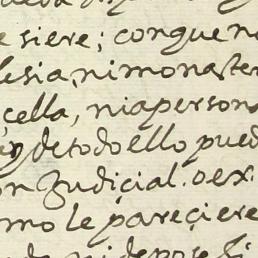 e siere; conque no
lesia, ni monaster
cella, ni aperson
de todo ello pued
on Judiçial. o ex.
mo le pareçiere